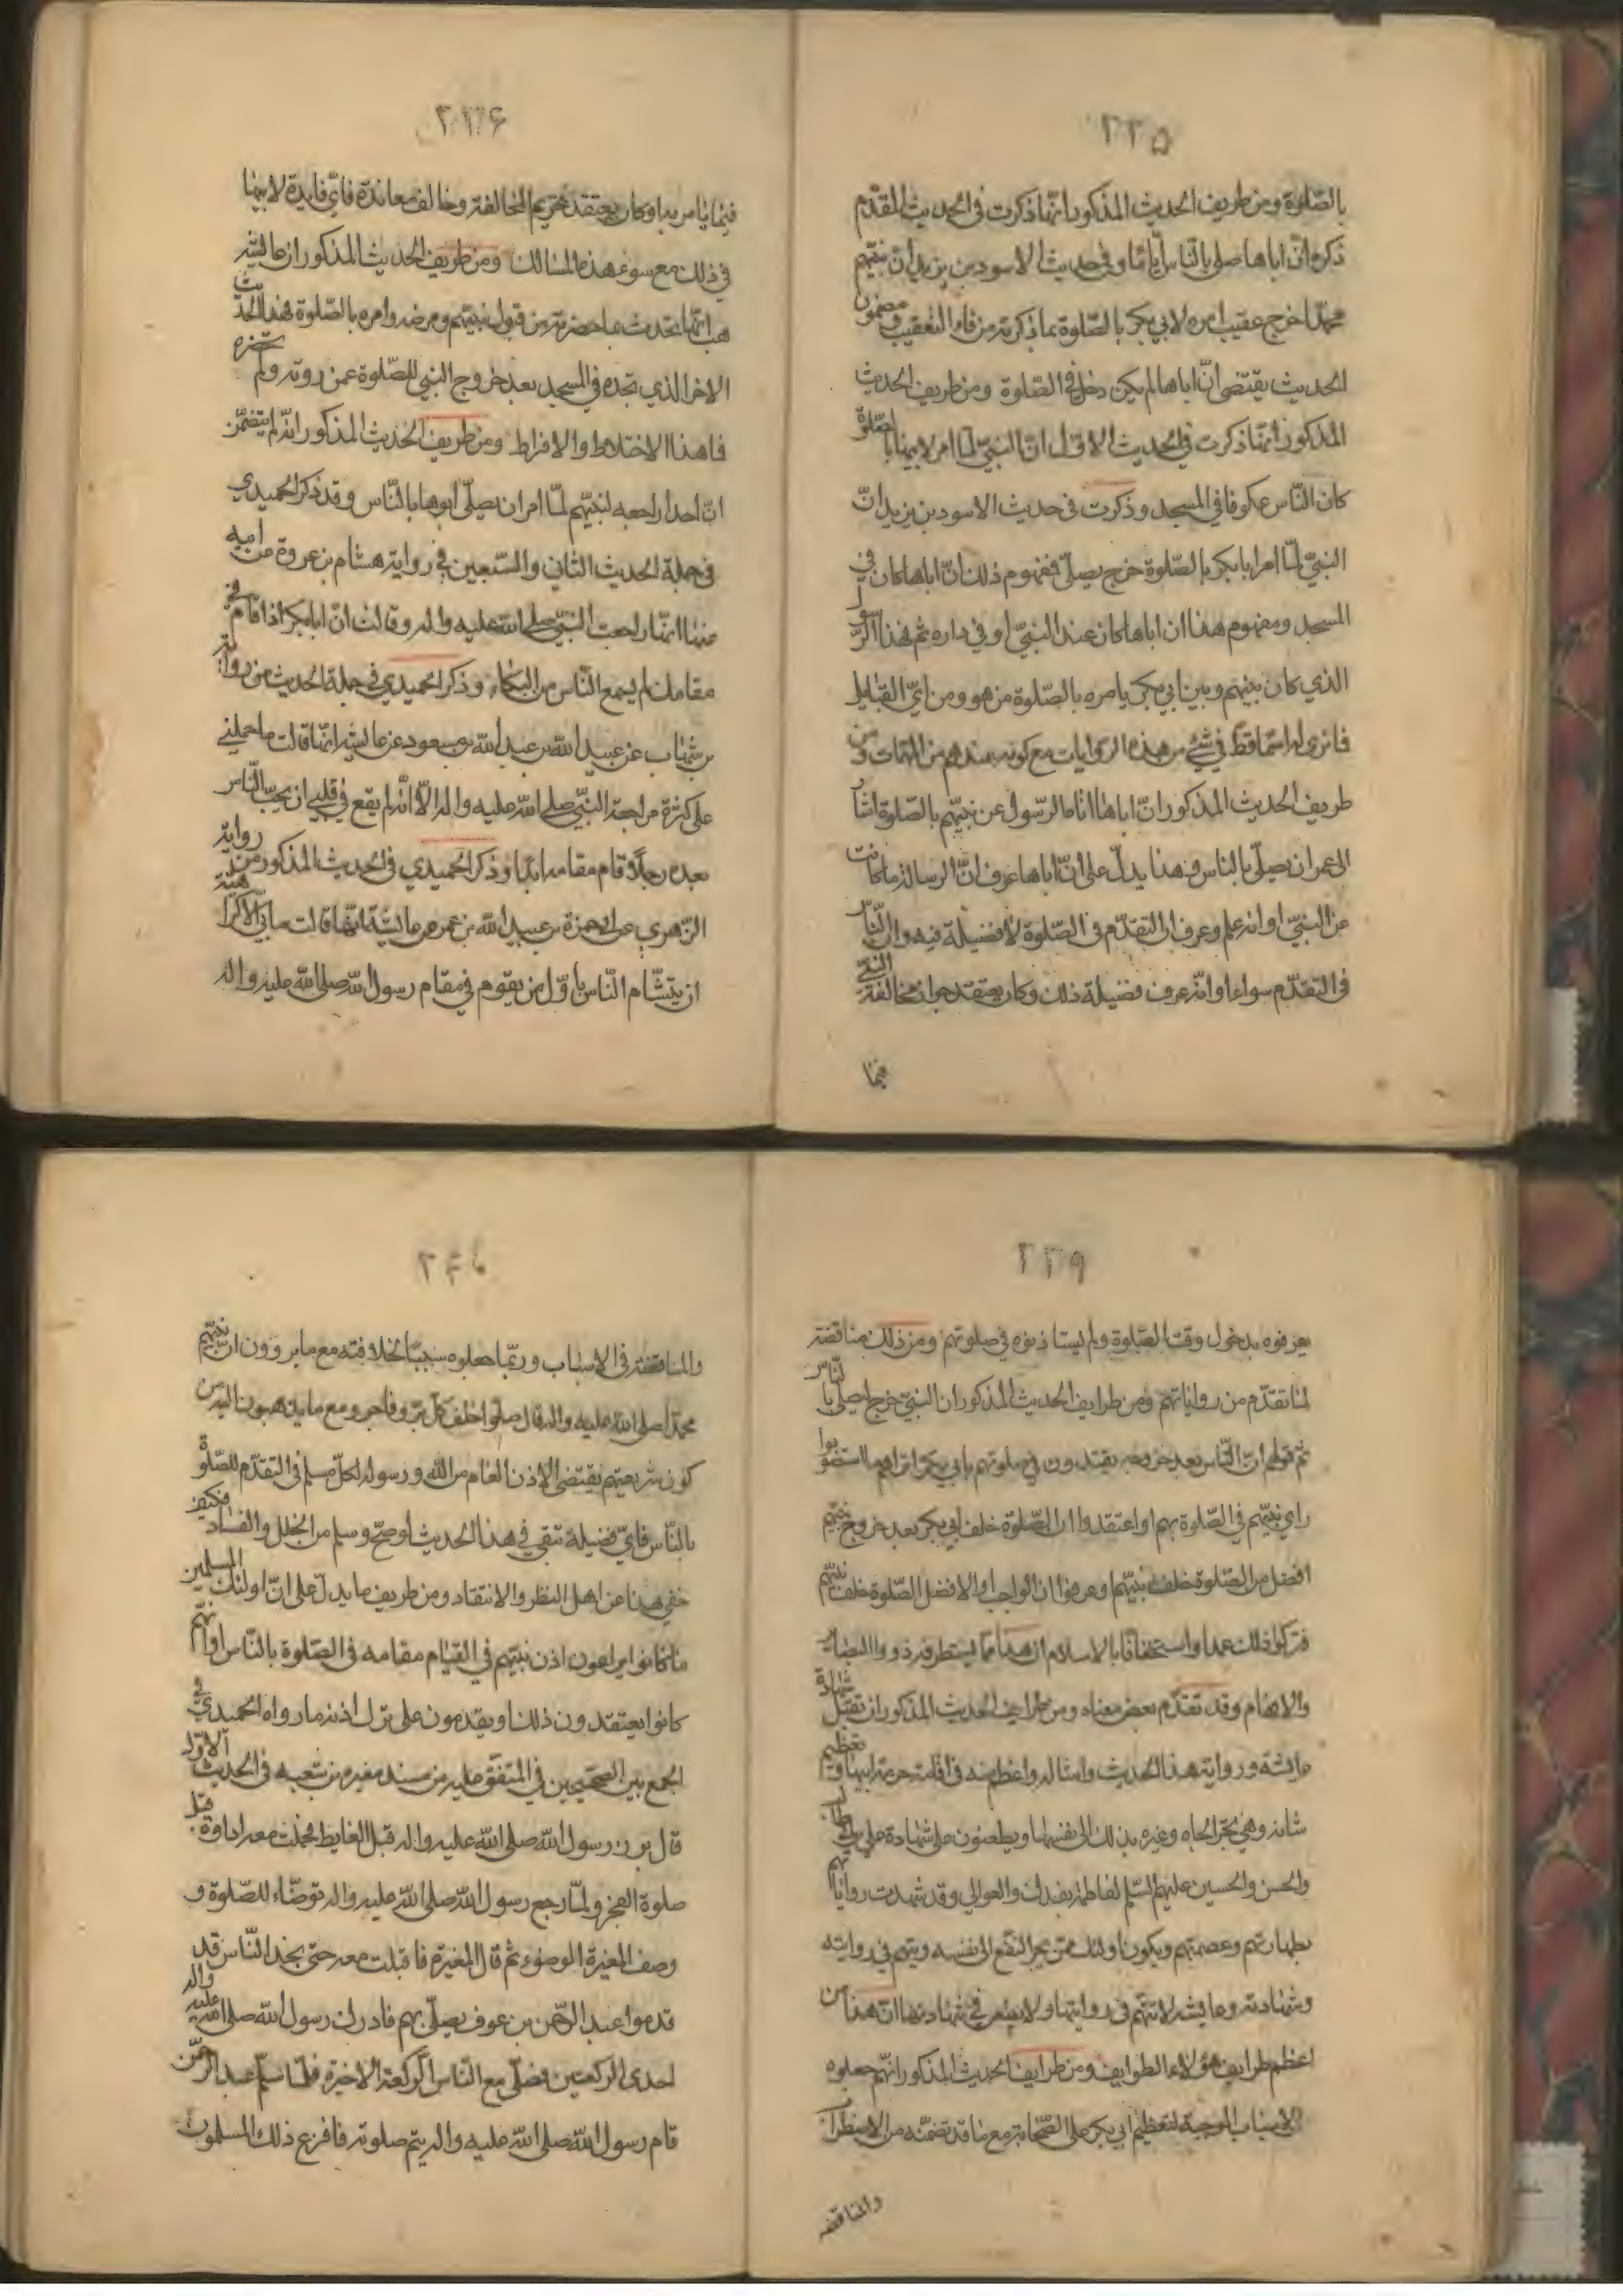 ۲۳۵
بالصّلوة ومن طريف الحديث المذكور انّها ذكرت في الحديث المقدّم
ذكره انّ اباها صلى بالنّاس ايّاما وفي حديث الاسود بن يزيد انّ نبيّهم
محمّدا خرج عقيب امره لابي بكر بالصّلوة بما ذكرته من فاء التعقيب ومضمون
الحديث يقتضى انّ اباها لم يكن دخل في الصّلوة ومن طريف الحديث
المذكور انّها ذكرت في الحديث الاوّل انّ النبيّ لمّا امر لابيها بالصّلوة
كان النّاس عكوفا في المسجد وذكرت فى حديث الاسود بن يزيد انّ
النبيّ لمّا امر ابا بكر بالصّلوة خرج يصلّى فمفهوم ذلك انّ اباها كان في
المسجد ومفهوم هذا ان اباها كان عند النبيّ او في داره ثم هذا الرّسول
الذي كان بينهم وبين ابي بكر يامره بالصّلوة من هو ومن ايّ القبايل
فما نرى له اسما قطّ في شئ من هذه الروايات مع كونه عندهم من المهمّات ومن
طريف الحديث المذكور انّ اباها لمّا اتاه الرّسول عن نبيّهم بالصّلوة اشار
الى عمر ان يصلّى بالناس وهذا يدلّ على انّ اباها عرف انّ الرسالة ما كانت
عن النبيّ او انّه علم وعرف انّ التقدّم فى الصّلوة لا فضيلة فيه وانّ النّاس
فى التقدّم سواء او انّه عرف فضيلة ذلك وكان يعتقد جواز مخالفة النّبي
فيما
۲۳۶
فيما يامر به او كان يعتقد تحريم المخالفة وخالف معاندة فايّ فايدة لابيها
في ذلك مع سوء هذه المسالك ومن طريف الحديث المذكور ان عائشة
هب انّها تحدث بما حضرته من قبول نبيّهم ومرضه وامره بالصّلوة فهذا الحديث
الاخر الذي تجده في المسجد بعد خروج النبي للصّلوة عمن روته ولم تحضره
فما هذا الاختلاط والافراط ومن طريف الحديث المذكور انّه لم يتضمّن
انّ احدا راجعه لنبيّهم لمّا امر ان يصلّى ابوها بالنّاس وقد ذكر الحميدي
فى جملة الحديث الثاني والسّبعين في رواية هشام بن عروة عن ابيه
عنها انّها راجعت النبيّ صلى الله عليه واله وقالت انّ ابا بكر اذا قام في
مقامك لم يسمع النّاس من البكاء وذكر الحميدي في جملة الحديث من رواية
بن شهاب عن عبيد الله بن عبد الله بن مسعود عن عائشة انّها قالت ما حملني
على كثرة مراجعة النبّي صلى الله عليه واله الّا انّه لم يقع في قلبي ان يحبّ النّاس
بعده رجلا قام مقامه ابدا وذكر الحميدي فى الحديث المذكور من رواية
الزّهري عن حمزة بن عبيد الله بن عمر عن عائشة انّها قالت ما بي الّا كراهية
ان يتشّام النّاس باوّل من يقوم في مقام رسول الله صلى الله عليه واله
۲۳۹
يعرفوه بدخول وقت الصّلوة ولم يستاذنوه في صلوتهم ومن ذلك مناقضة
لما تقدّم من رواياتهم ومن طرايف الحديث المذكور ان النبيّ خرج ليصلّي بالنّاس
ثمّ قولهم انّ النّاس بعد خروجه يقتدون في صلوتهم بابي بكر اتراهم ما استصوبوا
راي نبيّهم في الصّلوة بهم او اعتقدوا ان الصّلوة خلف ابي بكر بعد خروج نبيّهم
افضل من الصّلوة خلف نبيّهم او عرفوا ان الواجب او الافضل الصّلوة خلف نبيّهم
فتركوا ذلك عمدا واستخفافا بالاسلام ان هذا ممّا يستطرفه ذووا البصاير
والافهام وقد تقدّم بعض معناه ومن طرايف الحديث المذكور ان تقبل شهادة
عائشة ورواية هذا الحديث وامثاله واعظم منه في اقامة حرمة ابيها وتعظيم
شانه وهي تجرّ الجاه وغيره بذلك الى نفسها ويطعنون على شهادة علي بن ابي طالب
والحسن والحسين عليهم السّلم لفاطمة بفدك والعوالي وقد شهدت رواياتهم
بطهارتهم وعصمتهم ويكون اولئك ممّن يجرّ النّفع الى نفسه ويتّهم في روايته
وشهادته وعايشه لا تتّهم فى روايتها ولا يطعن في شهادتها انّ هذا من
اعظم طرايف هؤلاء الطوايف ومن طرايف الحديث المذكور انّهم جعلوه
الاسباب الموجبة لتعظيم ابي بكر على الصّحابة مع ما قد تضمّنه من الاضطراب
والمناقضه
۲۴۰
والمناقضة في الاسباب وربّما جعلوه سببا لخلافته مع ما يروون انّ نبيّهم
محمّدا صلى الله عليه واله قال صلّوا خلف كلّ برّ وفاجر ومع ما يذهبون اليه من
كون شريعتهم يقتضى الاذن العام من الله ورسوله لكلّ مسلم في التقدّم للصّلوة
بالنّاس فايّ فضيلة تبقى في هذا الحديث لو صحّ وسلم من الخلل والفساد فكيف
خفي هذا عن اهل النظر والانتقاد ومن طريف ما يدلّ على انّ اولئك المسلمين
ما كانوا يراعون اذن نبيّهم في القيام مقامه فى الصّلوة بالنّاس او انّهم
كانوا يعتقدون ذلك ويقدمون على ترك اذنه ما رواه الحميديّ في
الجمع بين الصحيحين في المتفق عليه من مسند مغيره بن شعبه فى الحديث الاوّل
قال برز رسول الله صلى الله عليه واله قبل الغايط فحملت معه اداوة قبل
صلوة الفجر ولمّا رجع رسول الله صلى الله عليه واله توضّاء للصّلوة و
وصف المغيرة الوضوء ثم قال المغيرة فاقبلت معه حتى نجد النّاس قد
قدموا عبد الرّحمن بن عوف يصلّي بهم فادرك رسول الله صلى الله عليه واله
احدى الركعتين فصلّى مع النّاس الرّكعة الاخيرة فلمّا سلّم عبد الرّحمن
قام رسول الله صلى الله عليه واله يتم صلوته فافزع ذلك المسلمون